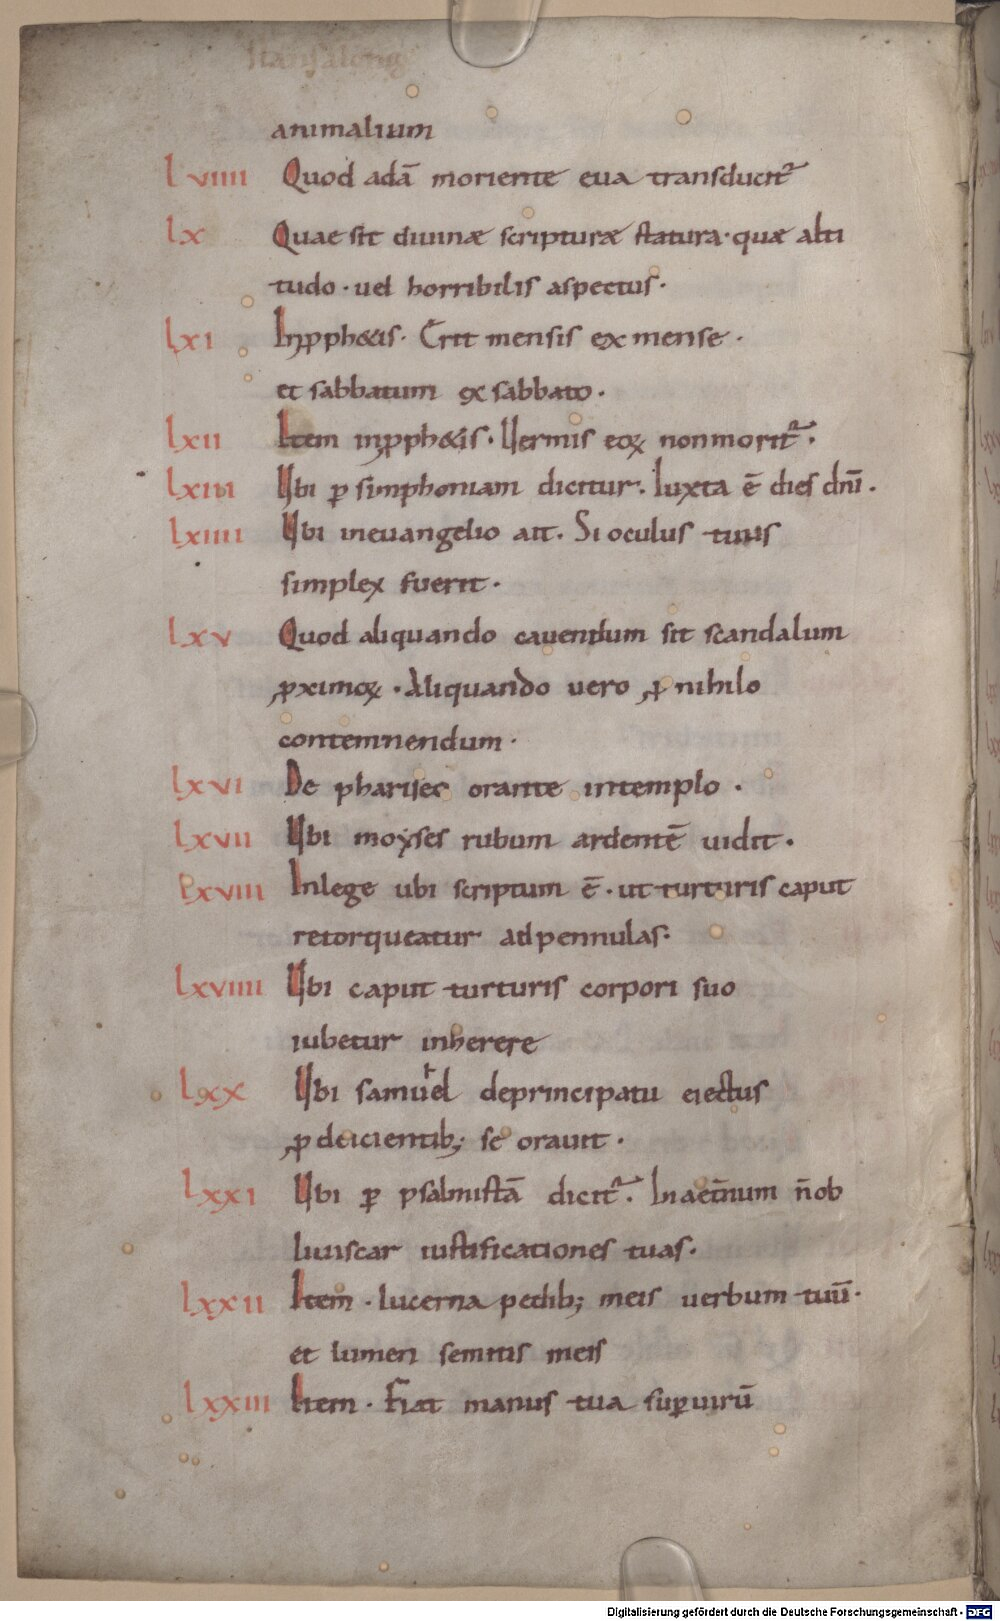 animalium
Lviiii Quod adā moriente eua transducit᷑
Lx Quae sit diuinæ scripturæ statura · quæ alti
tudo · uel horribilis aspectus ·
Lxi In ꝓph&is · Erit mensis ex mense ·
et sabbatum ex sabbato ·
Lxii Item in ꝓph&is · Uermis eoꝝ non morit᷑ ·
Lxiii Ubi ꝑ simphoniam dicitur · Iuxta ē dies dn̄i ·
Lxiiii Ubi in euangelio ait · Si oculus tuus
simplex fuerit ·
Lxv Quod aliquando cauendum sit scandalum
ꝓximoꝝ · Aliquando uero ꝓ nihilo
contemnendum ·
Lxvi De pharisæo orante in templo ·
Lxvii Ubi moyses rubum ardentē uidit ·
Lxviii In lege ubi scriptum ē · ut turturis caput
retorqueatur ad pennulas ·
Lxviiii Ubi caput turturis corpori suo
iubetur inherere
Lxx Ubi samuel de principatu eiectus
ꝓ deicientib; se orauit ·
Lxxi Ubi ꝑ psalmistā dicit᷑ · In aet̄num n̄ ob
liuiscar iustificationes tuas ·
Lxxii Item · lucerna pedib; meis uerbum tuū ·
et lumen semitis meis
Lxxiii Item · Fiat manus tua sup̱ uirū
Digitalisierung gefördert durch die Deutsche Forschungsgemeinschaft - DFG